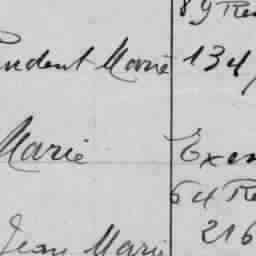 89 Re
udent Marie 134
Marie Exem
64 Re
Jean Marie 216